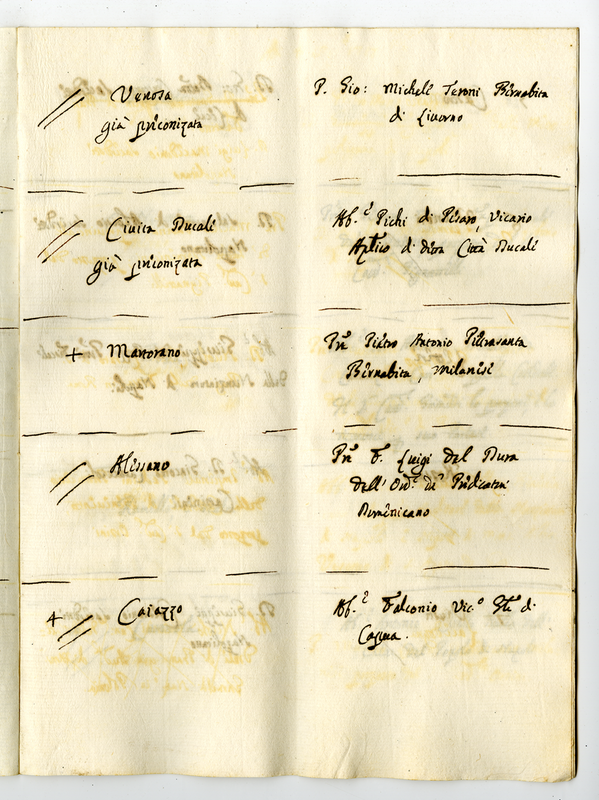 Venosa
già preconizata
P. Gio: Michele Teroni Bernabita
di Livorno
Civita Ducale
già preconizata
Ab.e Pichi di Pesaro, Vicario
Aplico di detta Città Ducale
+ Martorano
Pre Pietro Antonio Pietrasanta
Bernabita, Milanese
Alessano
Pre F. Luigi del Dura
dell' Ord.e de Predicatori
Domenicano
Caiazzo
Ab.e Falconio Vic.o di